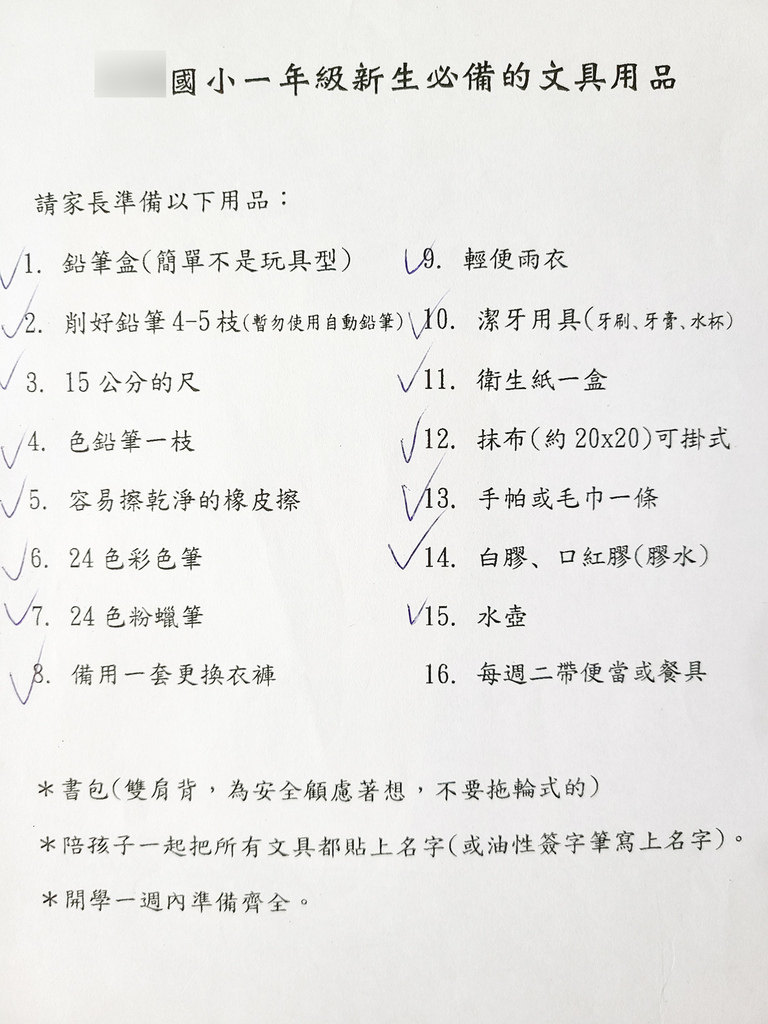 國小一年級新生必備的文具用品
請家長準備以下用品：
1. 鉛筆盒(簡單不是玩具型)
2. 削好鉛筆 4-5 枝(暫勿使用自動鉛筆)
3. 15 公分的尺
4. 色鉛筆一枝
5. 容易擦乾淨的橡皮擦
6. 24 色彩色筆
7. 24 色粉蠟筆
8. 備用一套更換衣褲
9. 輕便雨衣
10. 潔牙用具(牙刷、牙膏、水杯)
11. 衛生紙一盒
12. 抹布(約 20x20)可掛式
13. 手帕或毛巾一條
14. 白膠、口紅膠(膠水)
15. 水壺
16. 每週二帶便當或餐具
＊書包(雙肩背，為安全顧慮著想，不要拖輪式的)
＊陪孩子一起把所有文具都貼上名字(或油性簽字筆寫上名字)。
＊開學一週內準備齊全。